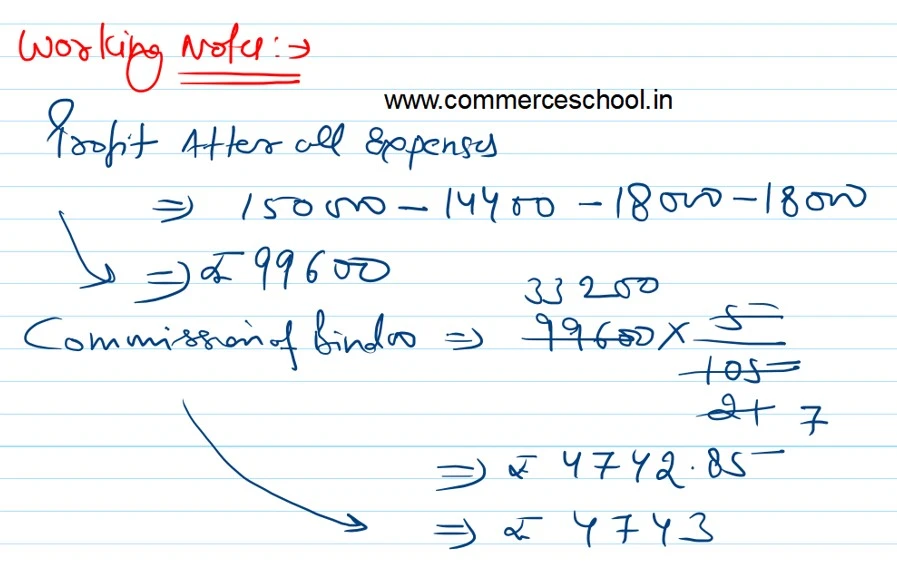 Working Note :→
www.commerceschool.in
Profit After all Expenses
⇒ 150000 - 14400 - 18000 - 18000
⇒ ₹ 99600
33200
Commission of Bindoo ⇒ 99600 × 5
105
21 7
⇒ ₹ 4742.85
⇒ ₹ 4743